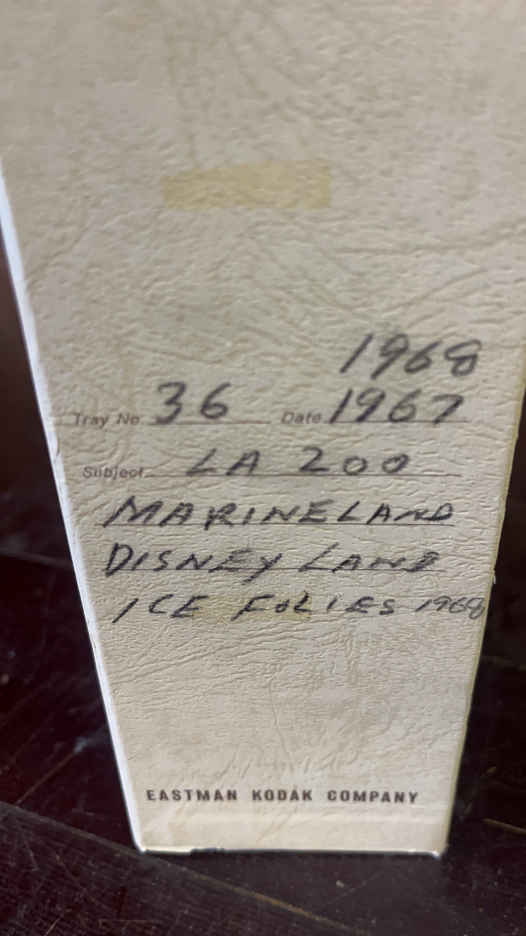 1968
Tray No 36 Date 1967
Subject LA ZOO
MARINELAND
DISNEY LAND
ICE FOLIES 1968
EASTMAN KODAK COMPANY